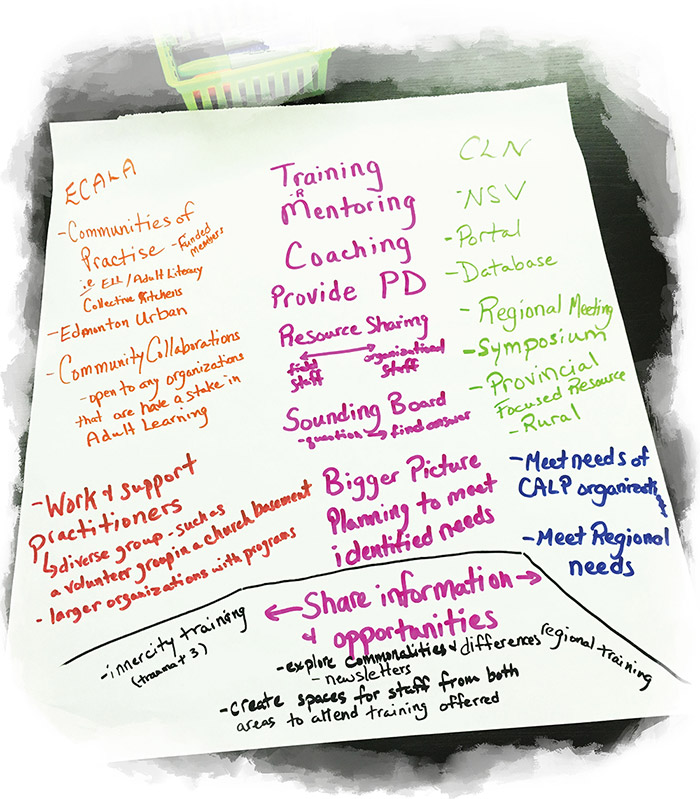 ECALA
-Communities of
Practise - Funded
members
i.e ELL/Adult Literacy
Collective Kitchens
-Edmonton Urban
-Community Collaborations
-open to any organizations
that are have a stake in
Adult Learning
-Work & support
practitioners
↳diverse group - such as
a volunteer group in a church basement
- larger organizations with programs
Training
Mentoring
Coaching
Provide PD
Resource Sharing
field
staff
organizational
staff
Sounding Board
-question → find answer
Bigger Picture
Planning to meet
identified needs
CLN
-NSV
-Portal
-Database
-Regional Meeting
-Symposium
-Provincial
Focused Resource
-Rural
-Meet needs of
CALP organizations
-Meet Regional
needs
← Share information →
& opportunities
-innercity training
(trauma + 3)
-explore commonalities & differences
-newsletters
-create spaces for staff from both
areas to attend training offerred
regional training